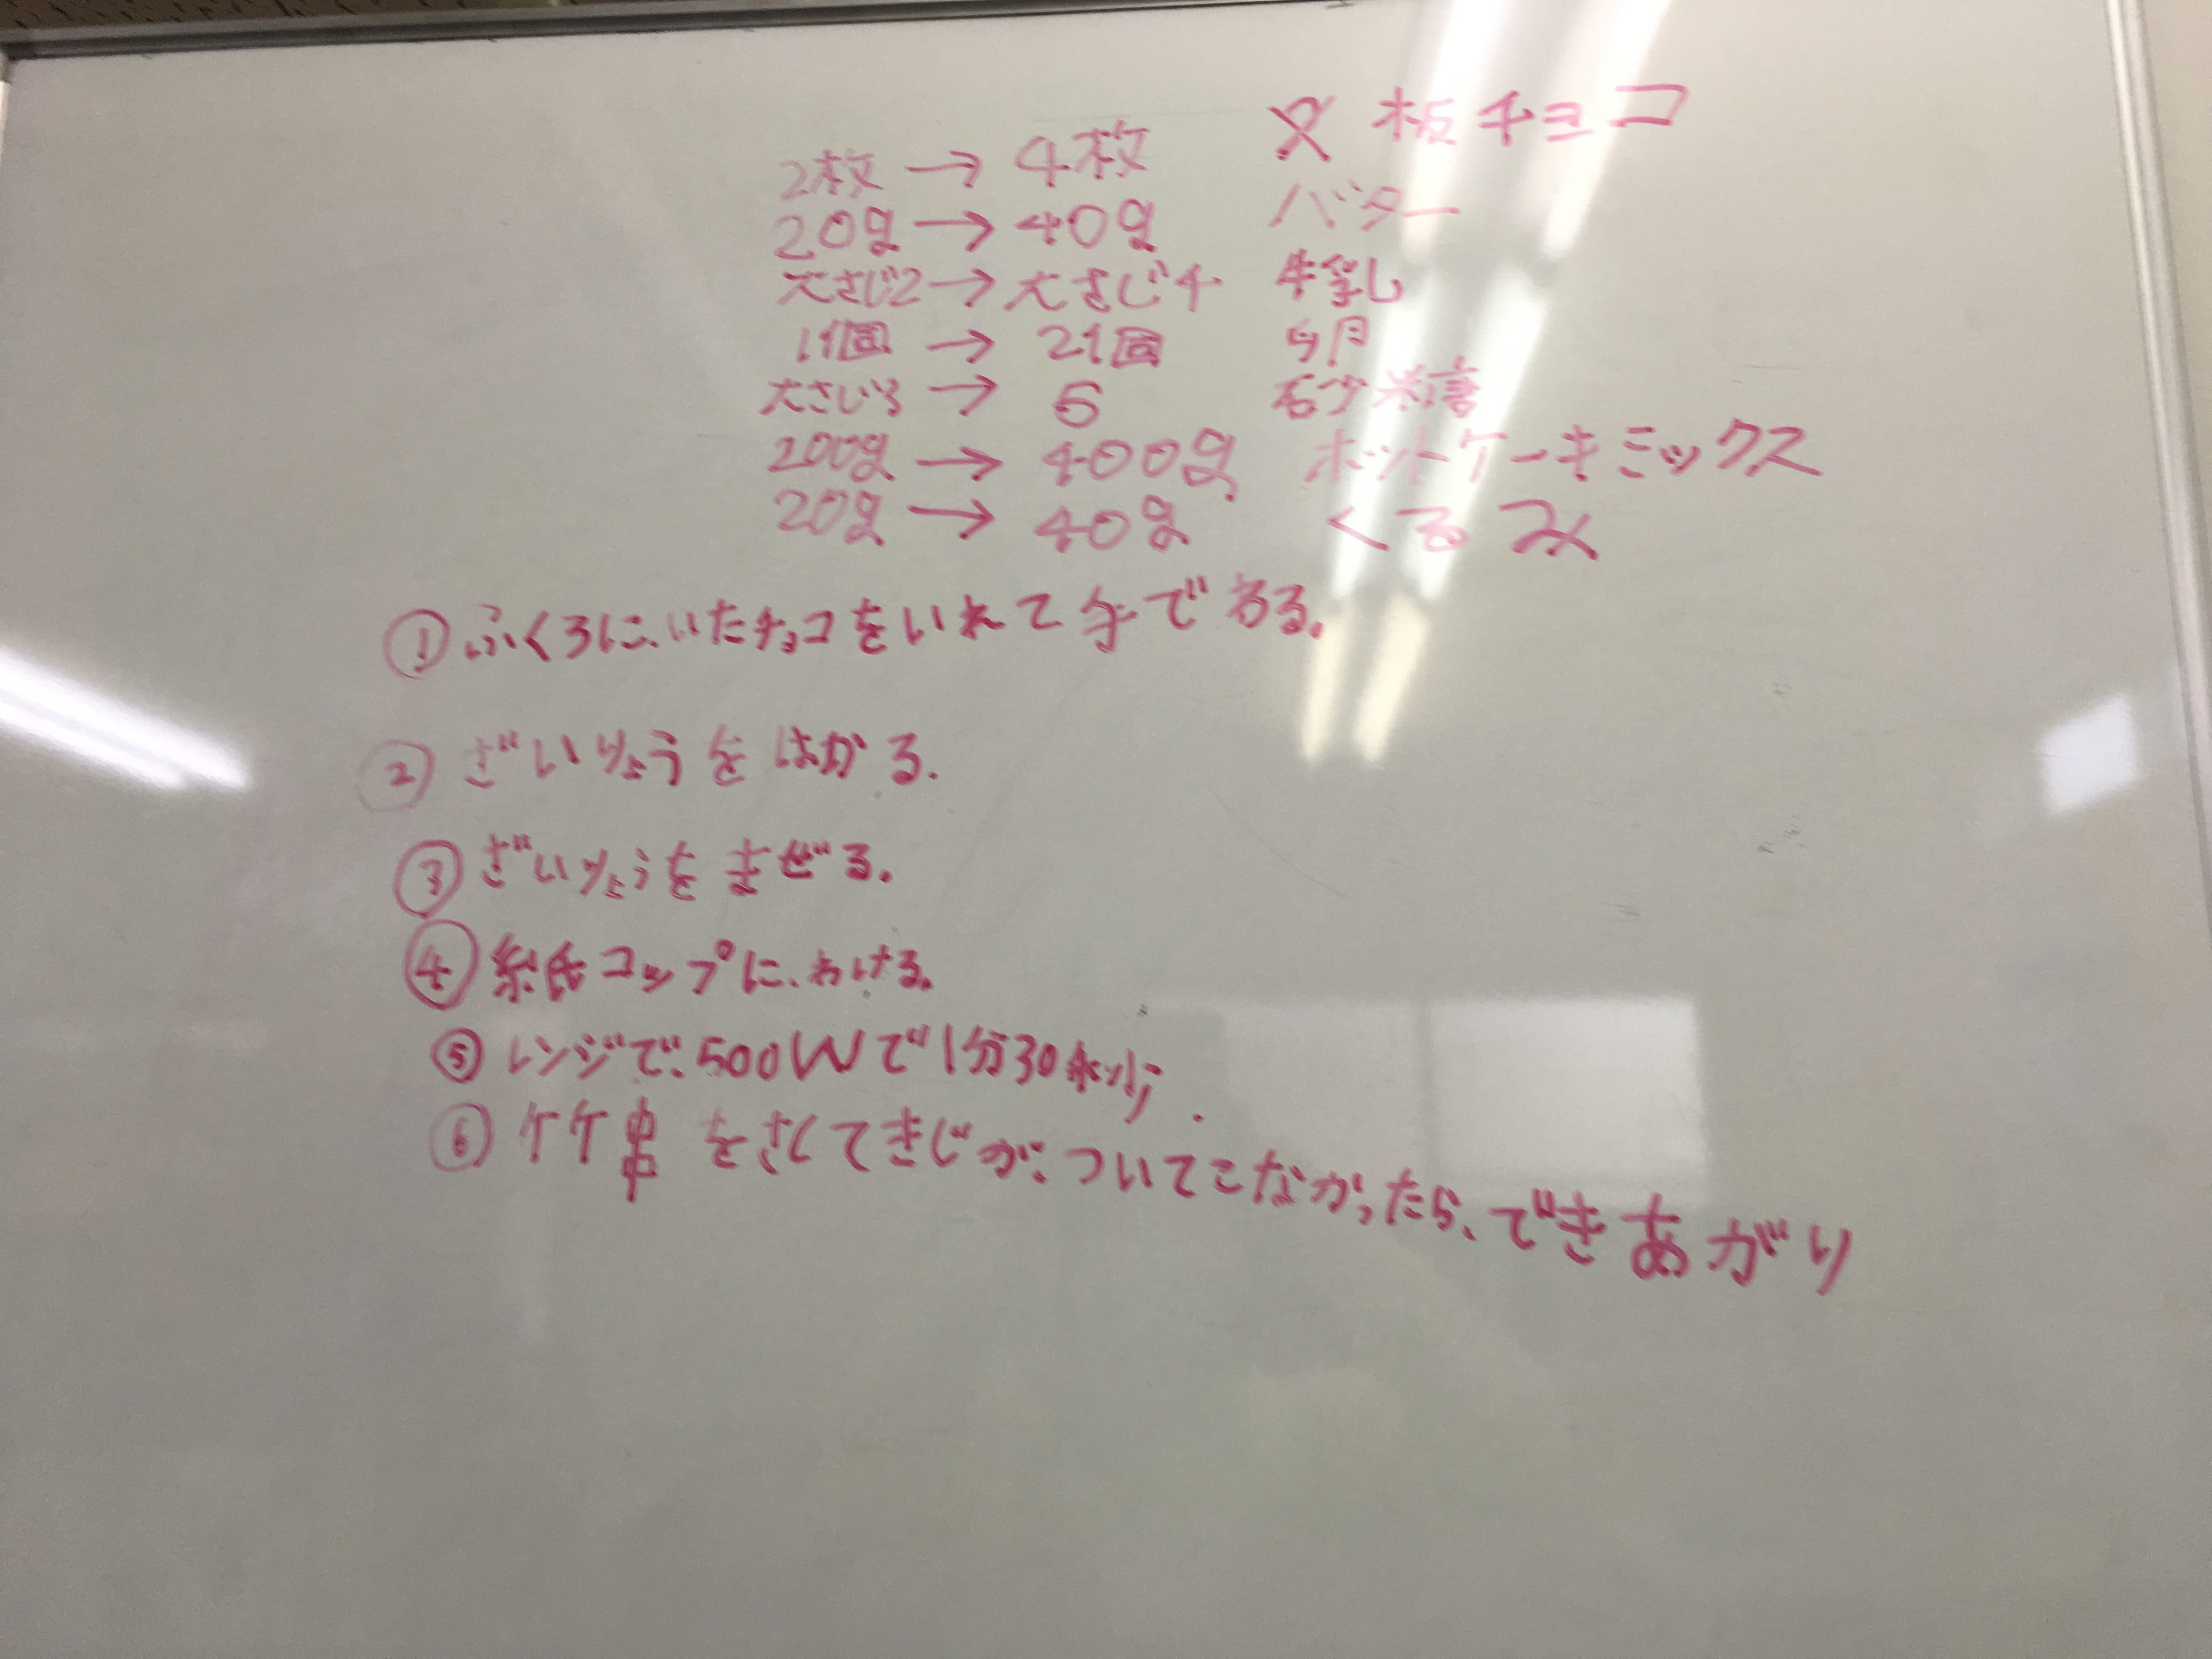 2枚 → 4枚 板チョコ
20g → 40g バター
大さじ2 → 大さじ4 牛乳
1個 → 2個 卵
大さじ3 → 6 砂糖
200g → 400g ホットケーキミックス
20g → 40g くるみ
① ふくろに、いたチョコをいれて手でわる。
② ざいりょうをはかる.
③ ざいりょうをまぜる.
④ 紙コップに、わける.
⑤ レンジで、500Wで1分30秒.
⑥ 竹串をさしてきじがついてこなかったら、できあがり